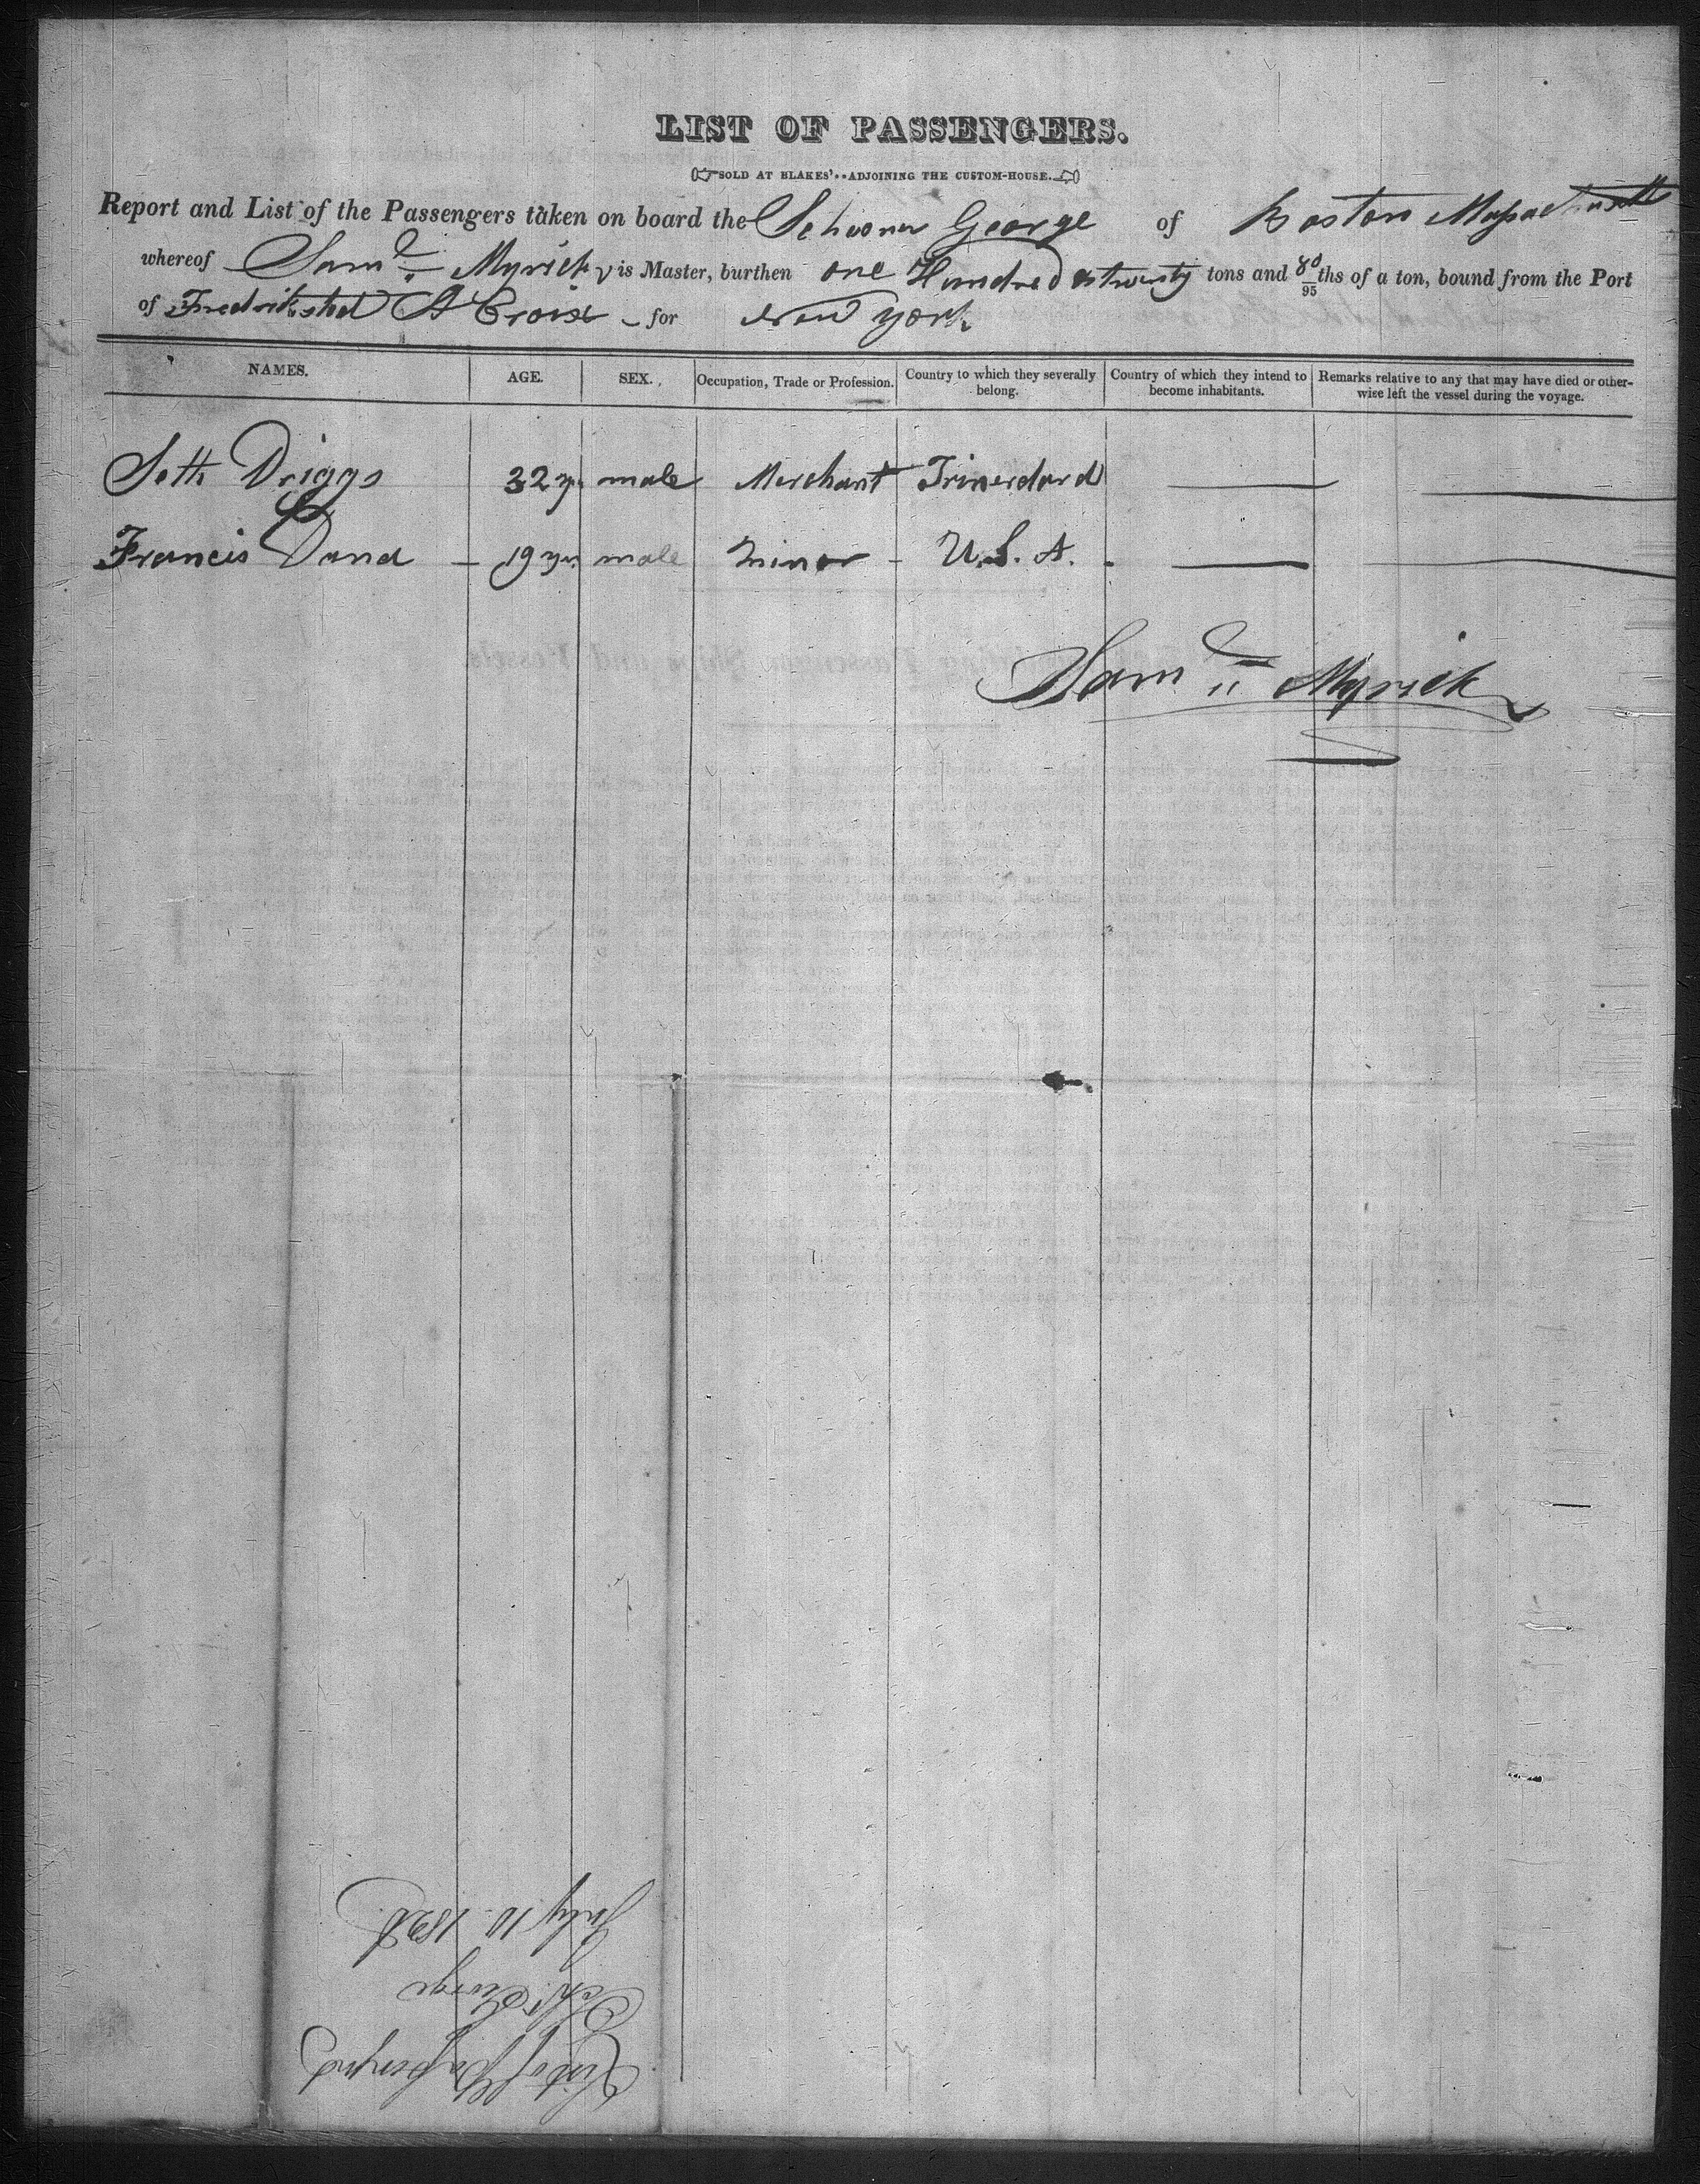 LIST OF PASSENGERS.
SOLD AT BLAKES'..ADJOINING THE CUSTOM-HOUSE.
Report and List of the Passengers taken on board the Schooner George of Boston Massachusetts
whereof Saml Myrick is Master, burthen one Hundred & twenty tons and 80/95ths of a ton, bound from the Port
of Fredriksted St Croix for New York
NAMES. AGE. SEX. Occupation, Trade or Profession. Country to which they severally belong. Country of which they intend to become inhabitants. Remarks relative to any that may have died or otherwise left the vessel during the voyage.
Seth Driggs 32 yrs male Merchant Trinerdard
Francis Dana 19 yrs male minor U.S.A.
Saml Myrick
List of Passengers
Schr George
July 10 182